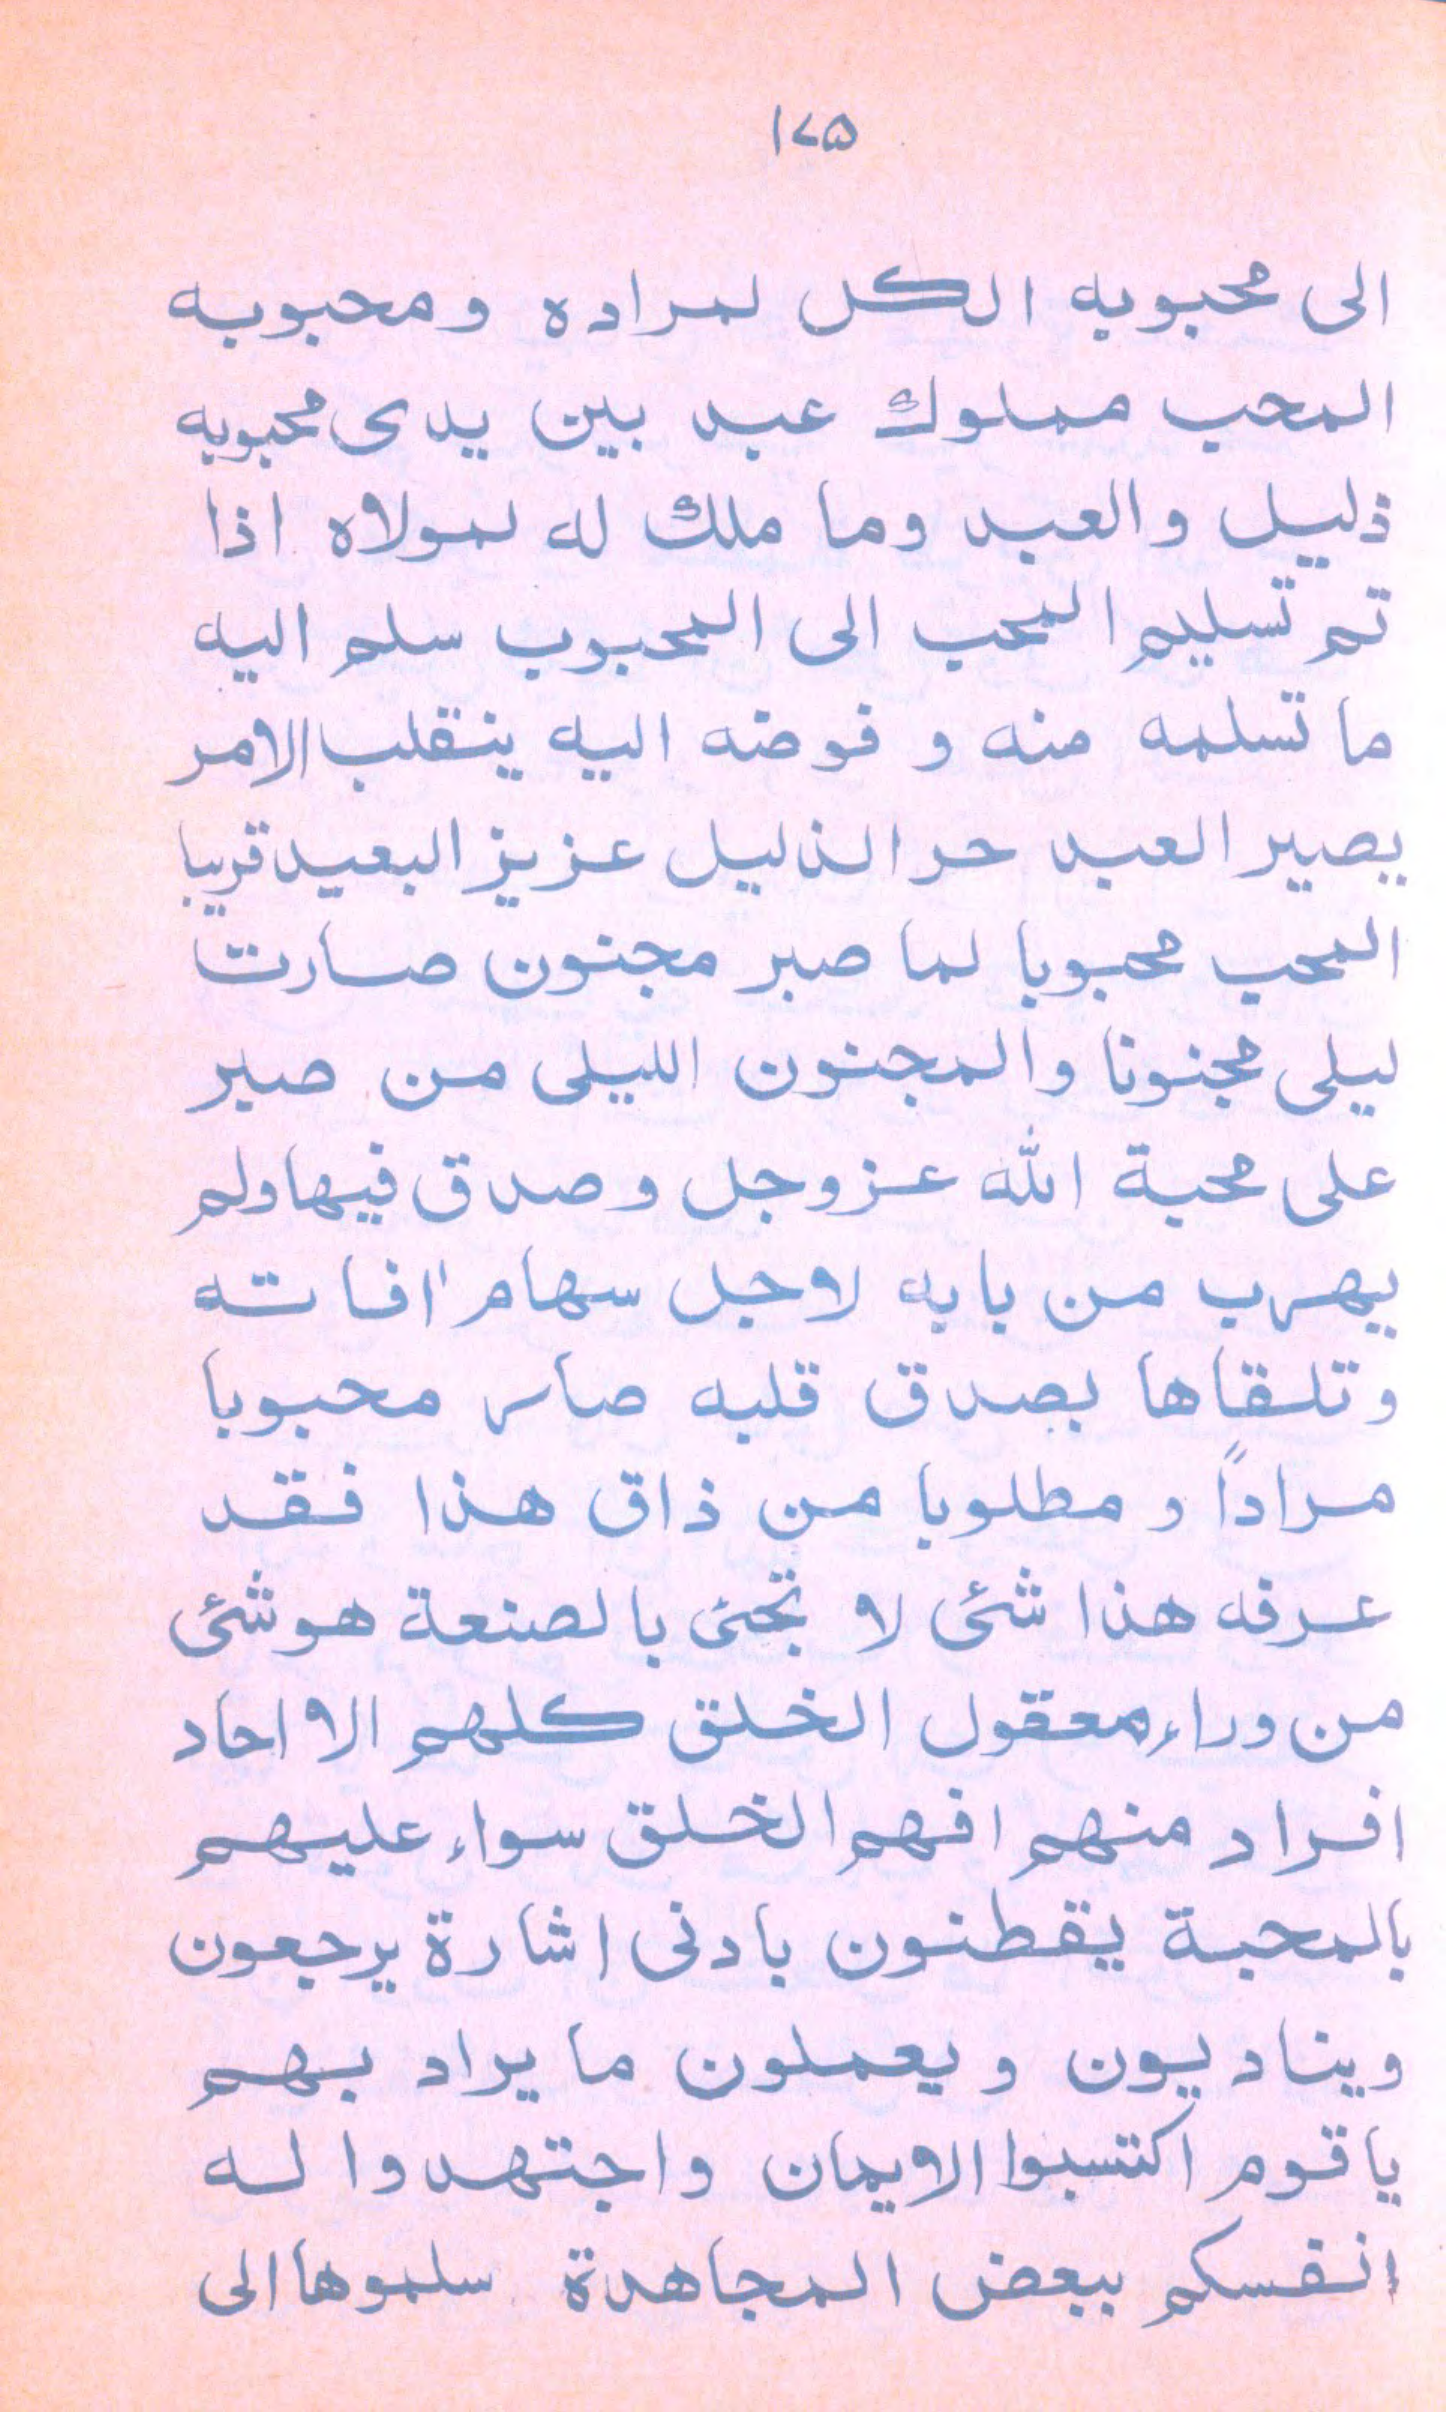 ۱۷۵
الى محبوبه الكل لمراده ومحبوبه
المحب مملوك عبد بين يدى محبوبه
ذليل والعبد وما ملك له لمولاه اذا
تم تسليم المحب الى المحبوب سلم اليه
ما تسلمه منه و فوضه اليه ينقلب الامر
يصير العبد حر الذليل عزيز البعيد قريبا
المحب محبوبا لما صبر مجنون صارت
ليلى مجنونا والمجنون الليلى من صبر
على محبة الله عزوجل وصدق فيها ولم
يهرب من بابه لاجل سهام افاته
وتلقاها بصدق قلبه صار محبوبا
مراداً و مطلوبا من ذاق هذا فقد
عرفه هذا شئى لا تجئى بالصنعة هو شئى
من وراء معقول الخلق كلهم الا احاد
افراد منهم افهم الخلق سواء عليهم
بالمحبة يقطنون بادنى اشارة يرجعون
ويناديون و يعملون ما يراد بهم
يا قوم اكتسبوا الايمان واجتهدوا له
انفسكم ببعض المجاهدة سلموها الى